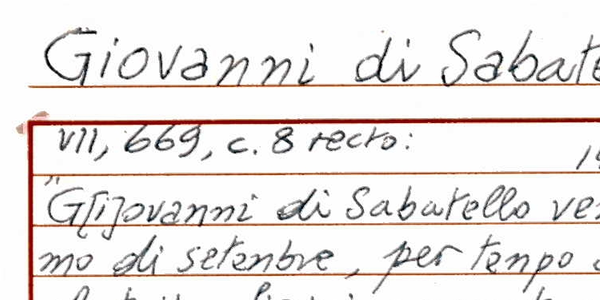 Giovanni di Sabate
VII, 669, c. 8 recto:
"G[i]ovanni di Sabatello ve
mo di setenbre, per tenpo